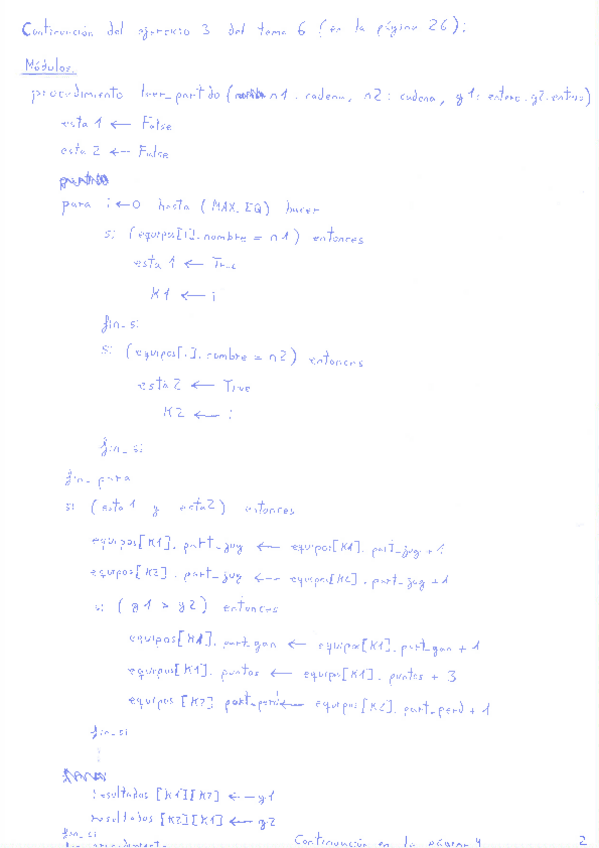 Continuación del ejercicio 3 del tema 6 (en la página 26):
Módulos.
procedimiento leer_partido ( n1: cadena, n2: cadena, g1: entero, g2: entero)
esta 1 ← False
esta 2 ← False
para i ← 0 hasta (MAX_EQ) hacer
si (equipos[i].nombre = n1) entonces
esta 1 ← True
K1 ← i
fin_si
si (equipos[i].nombre = n2) entonces
esta 2 ← True
K2 ← i
fin_si
fin_para
si (esta 1 y esta 2) entonces
equipos[K1].part_jug ← equipos[K1].part_jug + 1
equipos[K2].part_jug ← equipos[K2].part_jug + 1
si (g1 > g2) entonces
equipos[K1].part_gan ← equipos[K1].part_gan + 1
equipos[K1].puntos ← equipos[K1].puntos + 3
equipos[K2].part_perd ← equipos[K2].part_perd + 1
fin_si
⋮
resultados [K1][K2] ← g1
resultados [K2][K1] ← g2
fin_si
fin_procedimiento Continuación en la página 4 2